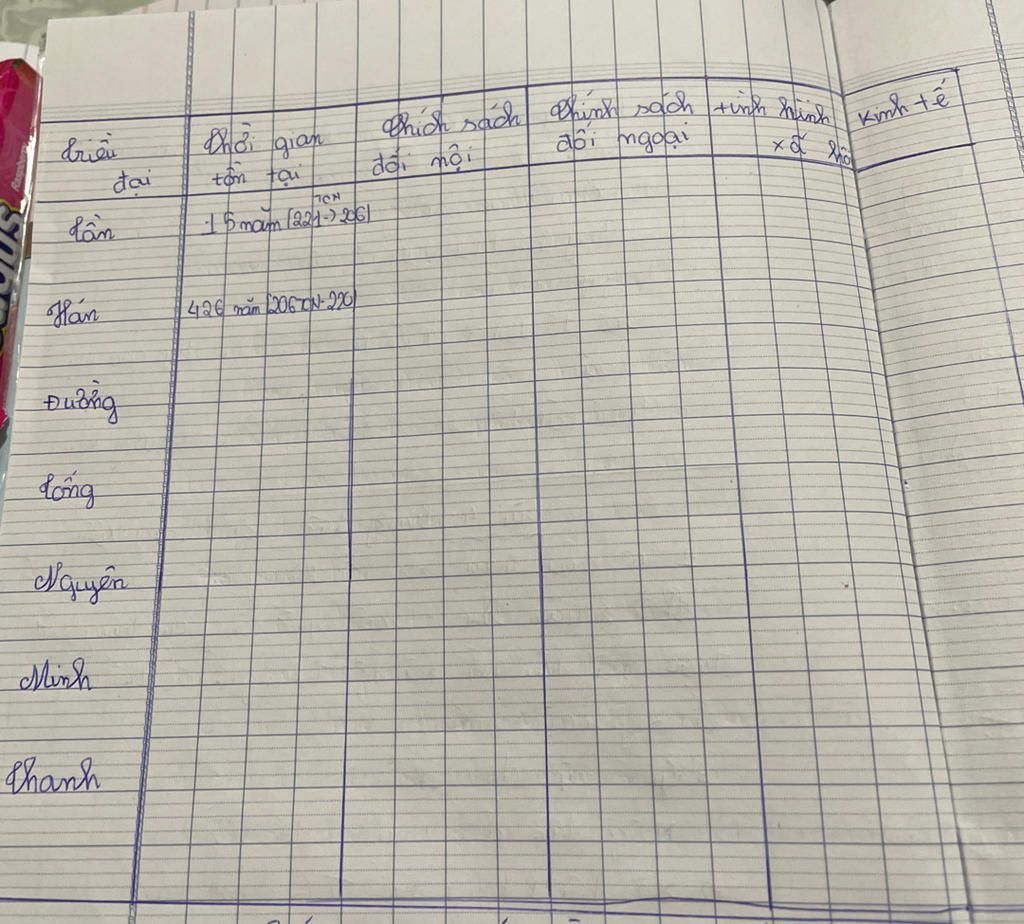 Triều đại
Thời gian tồn tại
Chích sách đối nội
Chính sách đối ngoại
tình hình xã hội
Kinh tế
Tần
15 năm (221 -> 206) TCN
Hán
426 năm (206 TCN - 220)
Đường
Tống
Nguyên
Minh
Thanh